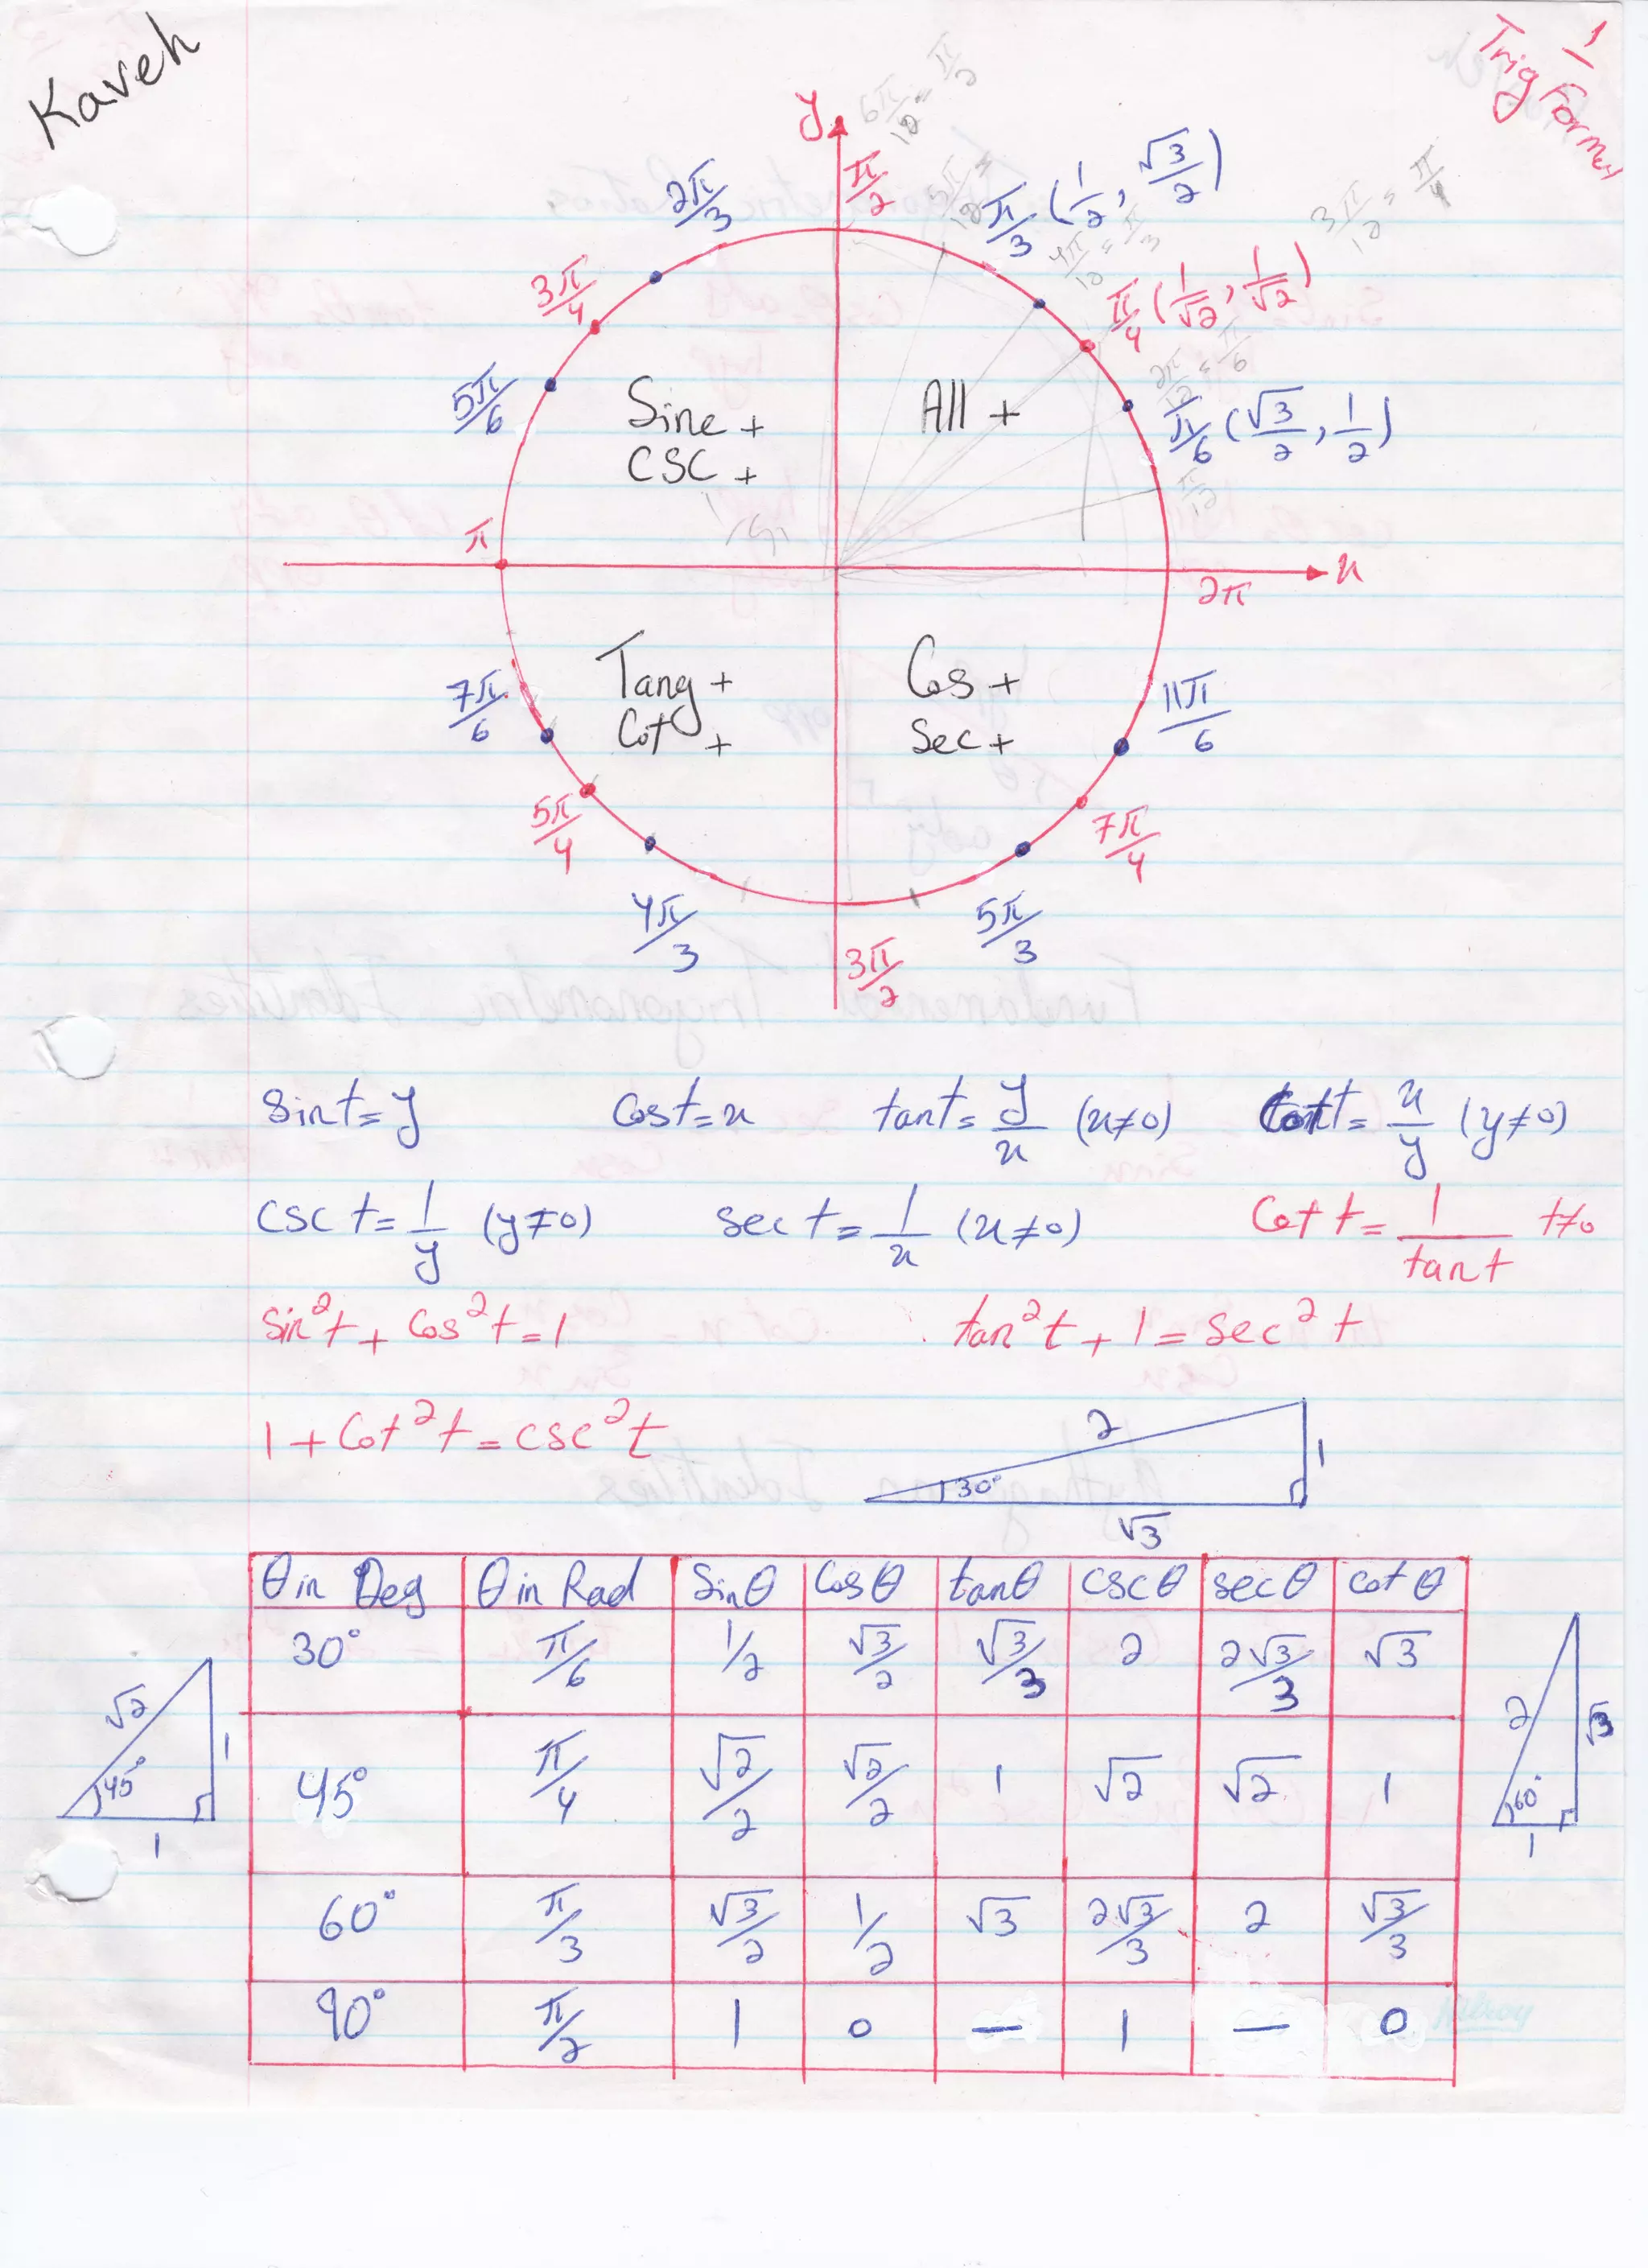 Kaveh
1
Trig Formul
y
6π/12 = π/2
π/2
5π/12
2π/3
π/3 (1/2, √3/2)
4π/12 = π/3
3π/12 = π/4
3π/4
π/4 (1/√2, 1/√2)
2π/12 = π/6
5π/6
π/6 (√3/2, 1/2)
Sine + All +
CSC +
π/12
π
x
2π
Tang + Cos +
Cot + Sec +
7π/6
11π/6
5π/4
7π/4
4π/3
5π/3
3π/2
Sin t = y Cos t = x tan t = y/x (x≠0) Cot t = x/y (y≠0)
CSC t = 1/y (y≠0) sec t = 1/x (x≠0) Cot t = 1/tan t t≠0
Sin²t + Cos²t = 1 tan²t + 1 = sec²t
1 + Cot²t = csc²t
2
30°
1
√3
θ in Deg θ in Rad Sin θ Cos θ tan θ csc θ sec θ cot θ
30° π/6 1/2 √3/2 √3/3 2 2√3/3 √3
45° π/4 √2/2 √2/2 1 √2 √2 1
60° π/3 √3/2 1/2 √3 2√3/3 2 √3/3
90° π/2 1 0 — 1 — 0
√2
45°
1
1
2
√3
60°
1
Hilroy